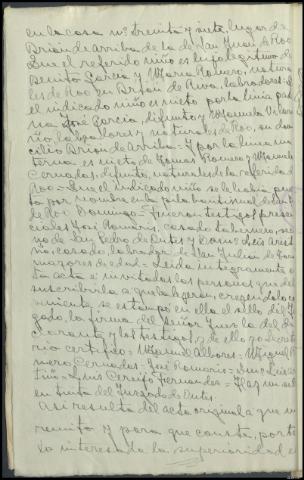 en la casa nº treinta y siete lugar de
Brión de arriba de la de San Juan de Roo
Que el referido niño es hijo legítimo de
Benito García y María Romero, natura-
les de Roo en Brión de Riva, labradores: q.
el indicado niño es nieto por la linia pa
na José García, difunto y Manuela Vilari
ño, labradores y naturales de Roo, su do
cilio Brión de Arriba = Y por la linia ma
terna es nieto de Tomas Romero y Manuela
Cernadas, difunta, naturales de la referida de
Roo = Que el indicado niño se le había pues
to por nombre en la pila bautismal de
de Roo Domingo = Fueron testigos presen
ciales José Romarís, casado tabernero, veci
no de San Pedro de Outes y Domingo Leis Ariste
no, casado, labrador, de San Julián de
mayores de edad = Leida integramente e
sta acta e invitadas las personas que deben
suscribirla a que la leyeran, creyendolo co
nveniente, se estampó en ella el sello del Juz
gado, la firma del Señor Juez la del de
clarante y los testigos, y de ello yo Secreta
rio certifico = Manuel Albores = Miguel Ro
mero Cernadas = José Romarís = Juan Leis
Luis Cereijo Fernandez = Hay un sell
en tinta del Juzgado de Outes.
Asi resulta del acta original a que me
remito y para que consta, por ti
lo interesado la superioridad, e